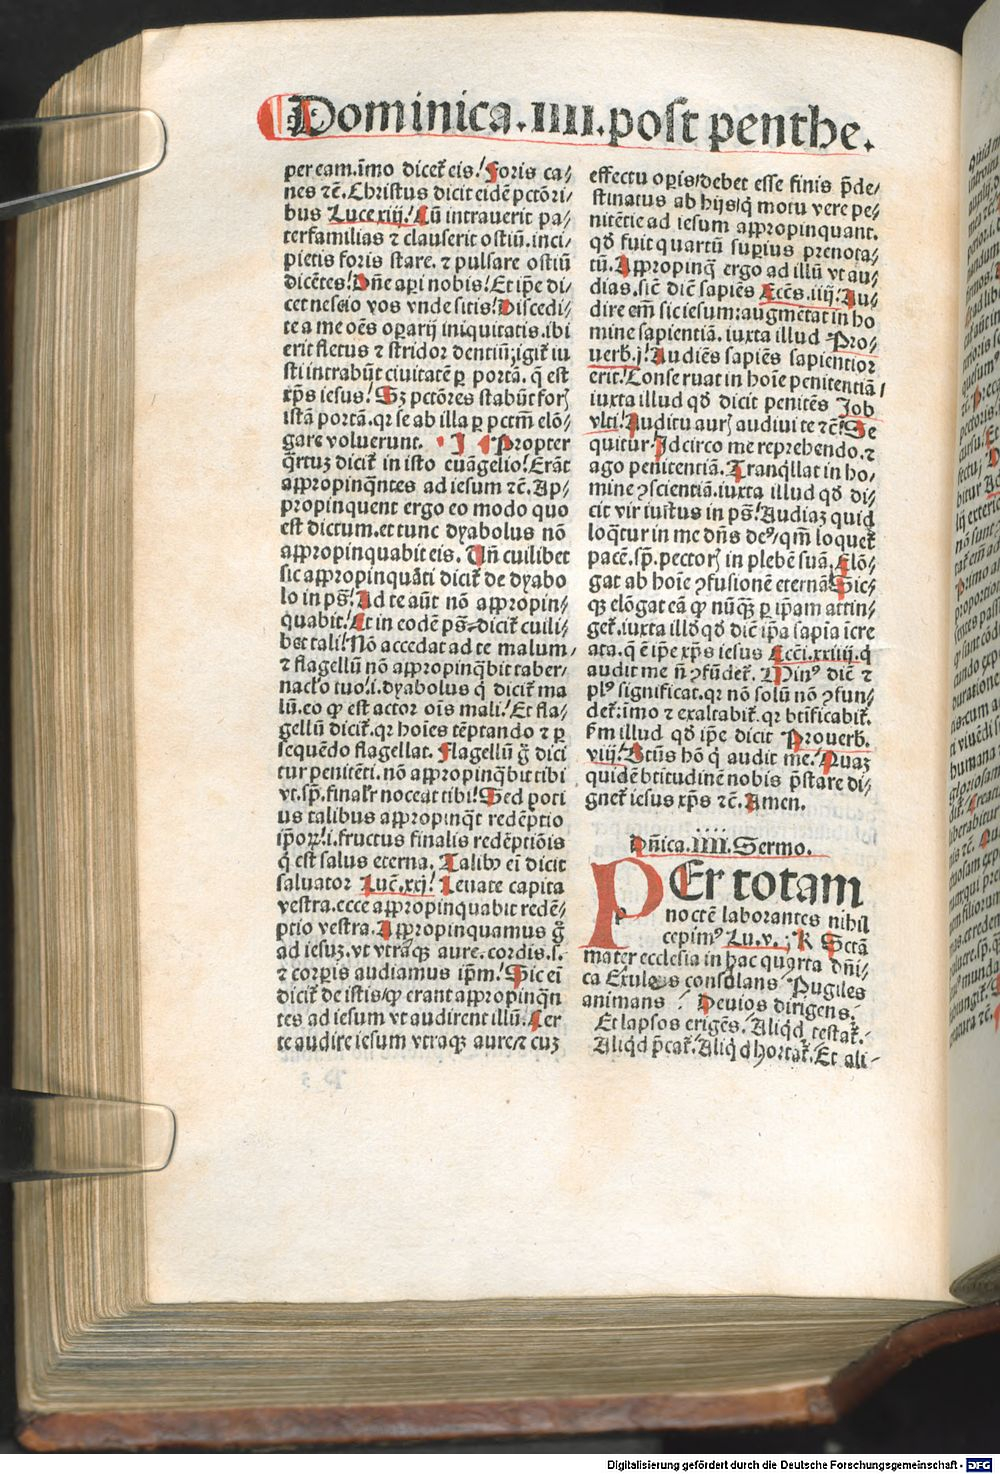 Dominica.IIII.post penthe.
per eam.īmo dicet̄ eis! Foris ca⸗
nes ⁊c̄. Christus dicit eidē pctōri⸗
bus Luce xiij! Cū intrauerit pa⸗
terfamilias ⁊ clauserit ostiū.inci⸗
pietis foris stare.⁊ pulsare ostiū
dicētes! Dn̄e aꝑi nobis! Et ip̄e di
cet nescio vos vnde sitis! Discedi⸗
te a me oēs oꝑarij iniquitatis.ibi
erit fletus ⁊ stridor dentiū;igit̄ iu
sti intrabūt ciuitatē ꝑ portā. q̄ est
xp̄s iesus! Sꝫ pctōres stabūt forꝭ
istā portā.qꝛ se ab illa ꝑ pctm̄ elō⸗
gare voluerunt. I Propter
q̄rtuꝫ dicit̄ in isto euāgelio! Erāt
appropinq̄ntes ad iesum ⁊c̄. Ap⸗
propinquent ergo eo modo quo
est dictum.et tunc dyabolus nō
appropinquabit eis. Vn̄ cuilibet
sic appropinquāti dicit̄ de dyabo
lo in ps̄! Ad te aūt nō appropin⸗
quabit! Et in eodē ps̄⸗dicit̄ cuili⸗
bet tali! Nō accedat ad te malum⸗
⁊ flagellū nō appropinq̄bit taber⸗
nacl̄o tuo!.i.dyabolus q̇ dicit̄ ma
lū.eo ꝙ est actor oīs mali! Et fla⸗
gellū dicit̄.qꝛ hoīes tēptando ⁊ ꝑ
sequēdo flagellat. Flagellū g̊ dici
tur penitēti.nō appropinq̄bit tibi
vt.sp̄.finalr̄ noceat tibi! Sed poti
us talibus appropinq̄t redēptio
ip̄oꝝ!.i.fructus finalis redēptiōis
q̄ est salus eterna. Talibꝰ em̄ dicit
saluator Luc̄.xxj! Leuate capita
vestra.ecce appropinquabit redē⸗
ptio vestra. Appropinquamus g̊
ad iesuꝫ.vt vtrāqꝫ aure.cordis.s.
⁊ corꝑis audiamus ip̄m! Sic em̄
dicit̄ de istis/ꝙ erant appropinq̄n
tes ad iesum vt audirent illū. Fer
te audire iesum vtraqꝫ aure/⁊ cuꝫ
effectu oꝑis/debet esse finis p̄de⸗
stinatus ab hijs/q̇ motu vere pe⸗
nitētie ad iesum appropinquant.
qd̄ fuit quartū suꝑius prenota⸗
tū. Appropinq̄ ergo ad illū vt au⸗
dias.sic̄ dic̄ sapiēs Ecc̄s.iiij! Au⸗
dire em̄ sic iesum:augmētat in ho
mine sapientiā.iuxta illud Pro⸗
uerb.j! Audiēs sapiēs sapientior
erit! Conseruat in hoīe penitentiā/
iuxta illud qd̄ dicit penitēs Job
vlti! Auditu aurꝭ audiui te ⁊c̄! Se
quitur. Idcirco me reprehendo.⁊
ago penitentiā. Tranq̇llat in ho⸗
mine ꝯscientiā.iuxta illud qd̄ di⸗
cit vir iustus in ps̄! Audiaꝫ quid
loq̄tur in me dn̄s deꝰ/qm̄ loquet̄
pacē.sp̄.pectorꝭ in plebem suā. Elō⸗
gat ab hoīe ꝯfusionē eternā Sic⸗
qꝫ elōgat eā ꝙ nūq̄ꝫ ꝑ ip̄am attin⸗
get̄.iuxta illd̄ qd̄ dic̄ ip̄a sapīa īcre
ata.q̄ ē ip̄e xp̄s iesus Ecc̄i.xxiiij.q̇
audit me n̄ ꝯfūdet̄. Minꝰ dic̄ ⁊
plꝰ significat.qꝛ nō solū nō ꝯfun⸗
det̄:īmo ⁊ exaltabit̄.qꝛ btīficabit̄.
fm illud qd̄ ip̄e dicit Prouerb.
viij! Btūs hō q̇ audit me! Quaꝫ
quidē btītudinē nobis p̄stare di⸗
gnet̄ iesus xp̄s ⁊c̄. Amen.
Dn̄ica.IIII.Sermo.
PEr totam
noctē laborantes nihil
cepimꝰ Lu.v.; R Sctā
mater ecclesia in hac quarta dn̄i⸗
ca Exules consolans Pugiles
animans Deuios dirigens!
Et lapsos erigēs! Aliq̇d testat̄!
Aliq̇d p̄cat̄! Aliq̇d hortat̄! Et ali⸗
Digitalisierung gefördert durch die Deutsche Forschungsgemeinschaft - DFG